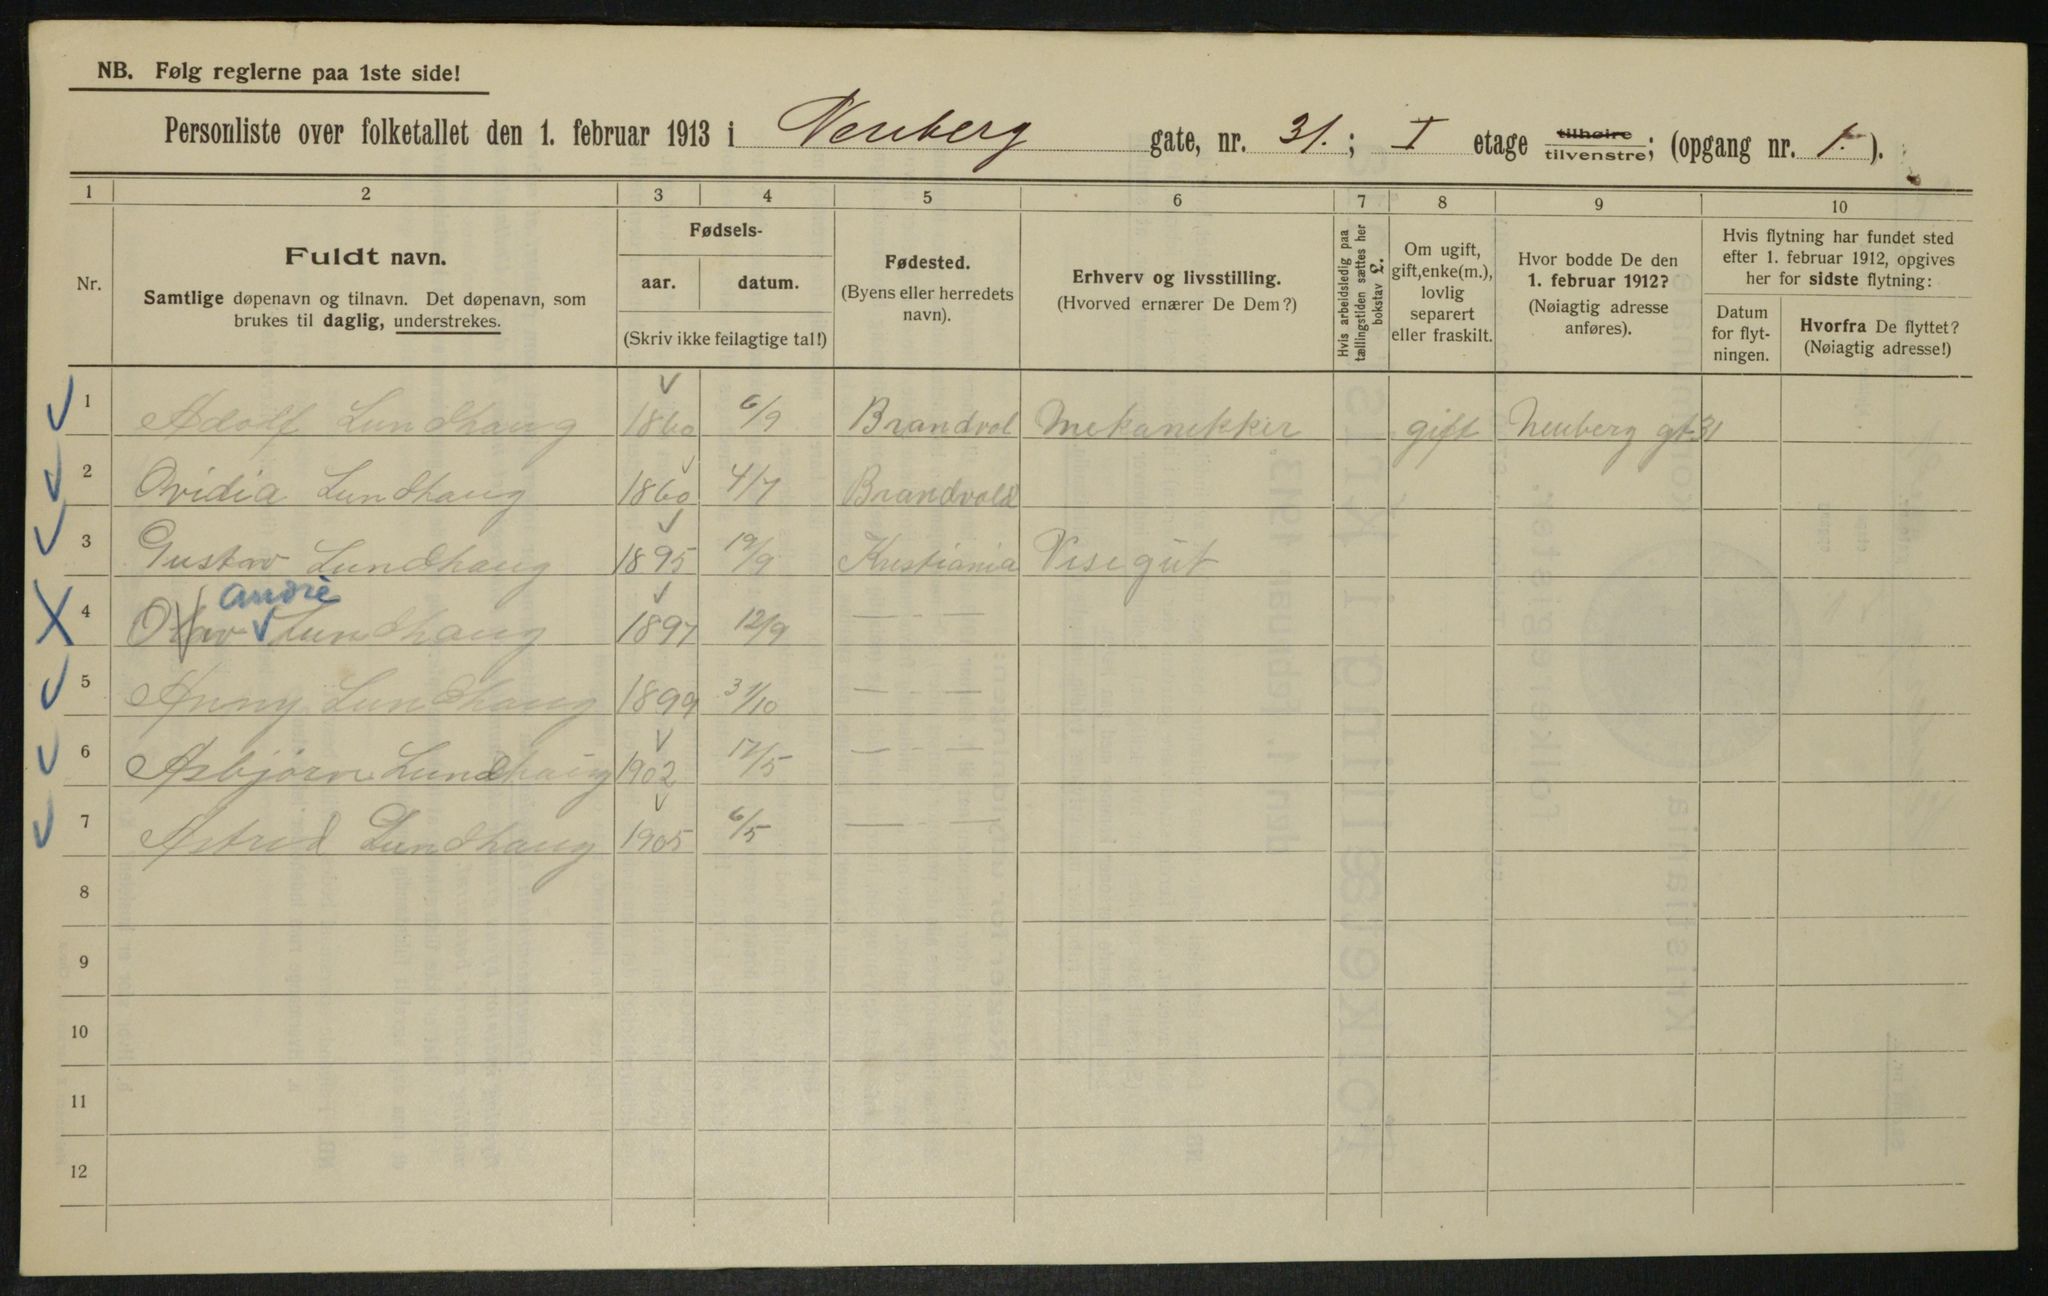 NB. Følg reglerne paa 1ste side!
Personliste over folketallet den 1. februar 1913 i Neuberg gate, nr. 31.; I etage tilhøire tilvenstre; (opgang nr. 1.).
1 2 3 4 5 6 7 8 9 10
Nr.
Fuldt navn.
Samtlige døpenavn og tilnavn. Det døpenavn, som
brukes til daglig, understrekes.
Fødsels-
aar. datum.
(Skriv ikke feilagtige tal!)
Fødested.
(Byens eller herredets
navn).
Erhverv og livsstilling.
(Hvorved ernærer De Dem?)
Hvis arbeidsledig paa
tællingstiden sættes her
bokstav L.
Om ugift,
gift, enke(m.),
lovlig
separert
eller fraskilt.
Hvor bodde De den
1. februar 1912?
(Nøiagtig adresse
anføres).
Hvis flytning har fundet sted
efter 1. februar 1912, opgives
her for sidste flytning:
Datum
for flyt-
ningen.
Hvorfra De flyttet?
(Nøiagtig adresse!)
1 Adolf Lundhaug 1860 6/9 Brandvol Mekanekker gift Neuberg gt 31
2 Ovidia Lundhaug 1860 4/7 Brandvold
3 Gustav Lundhaug 1895 19/9 Kristiania Visegut
André
4 Lundhaug 1897 12/9 — — —
5 Anny Lundhaug 1899 31/10 — — —
6 Asbjørn Lundhaug 1902 17/5 — — —
7 Astrid Lundhaug 1905 6/5 — — —
8
9
10
11
12